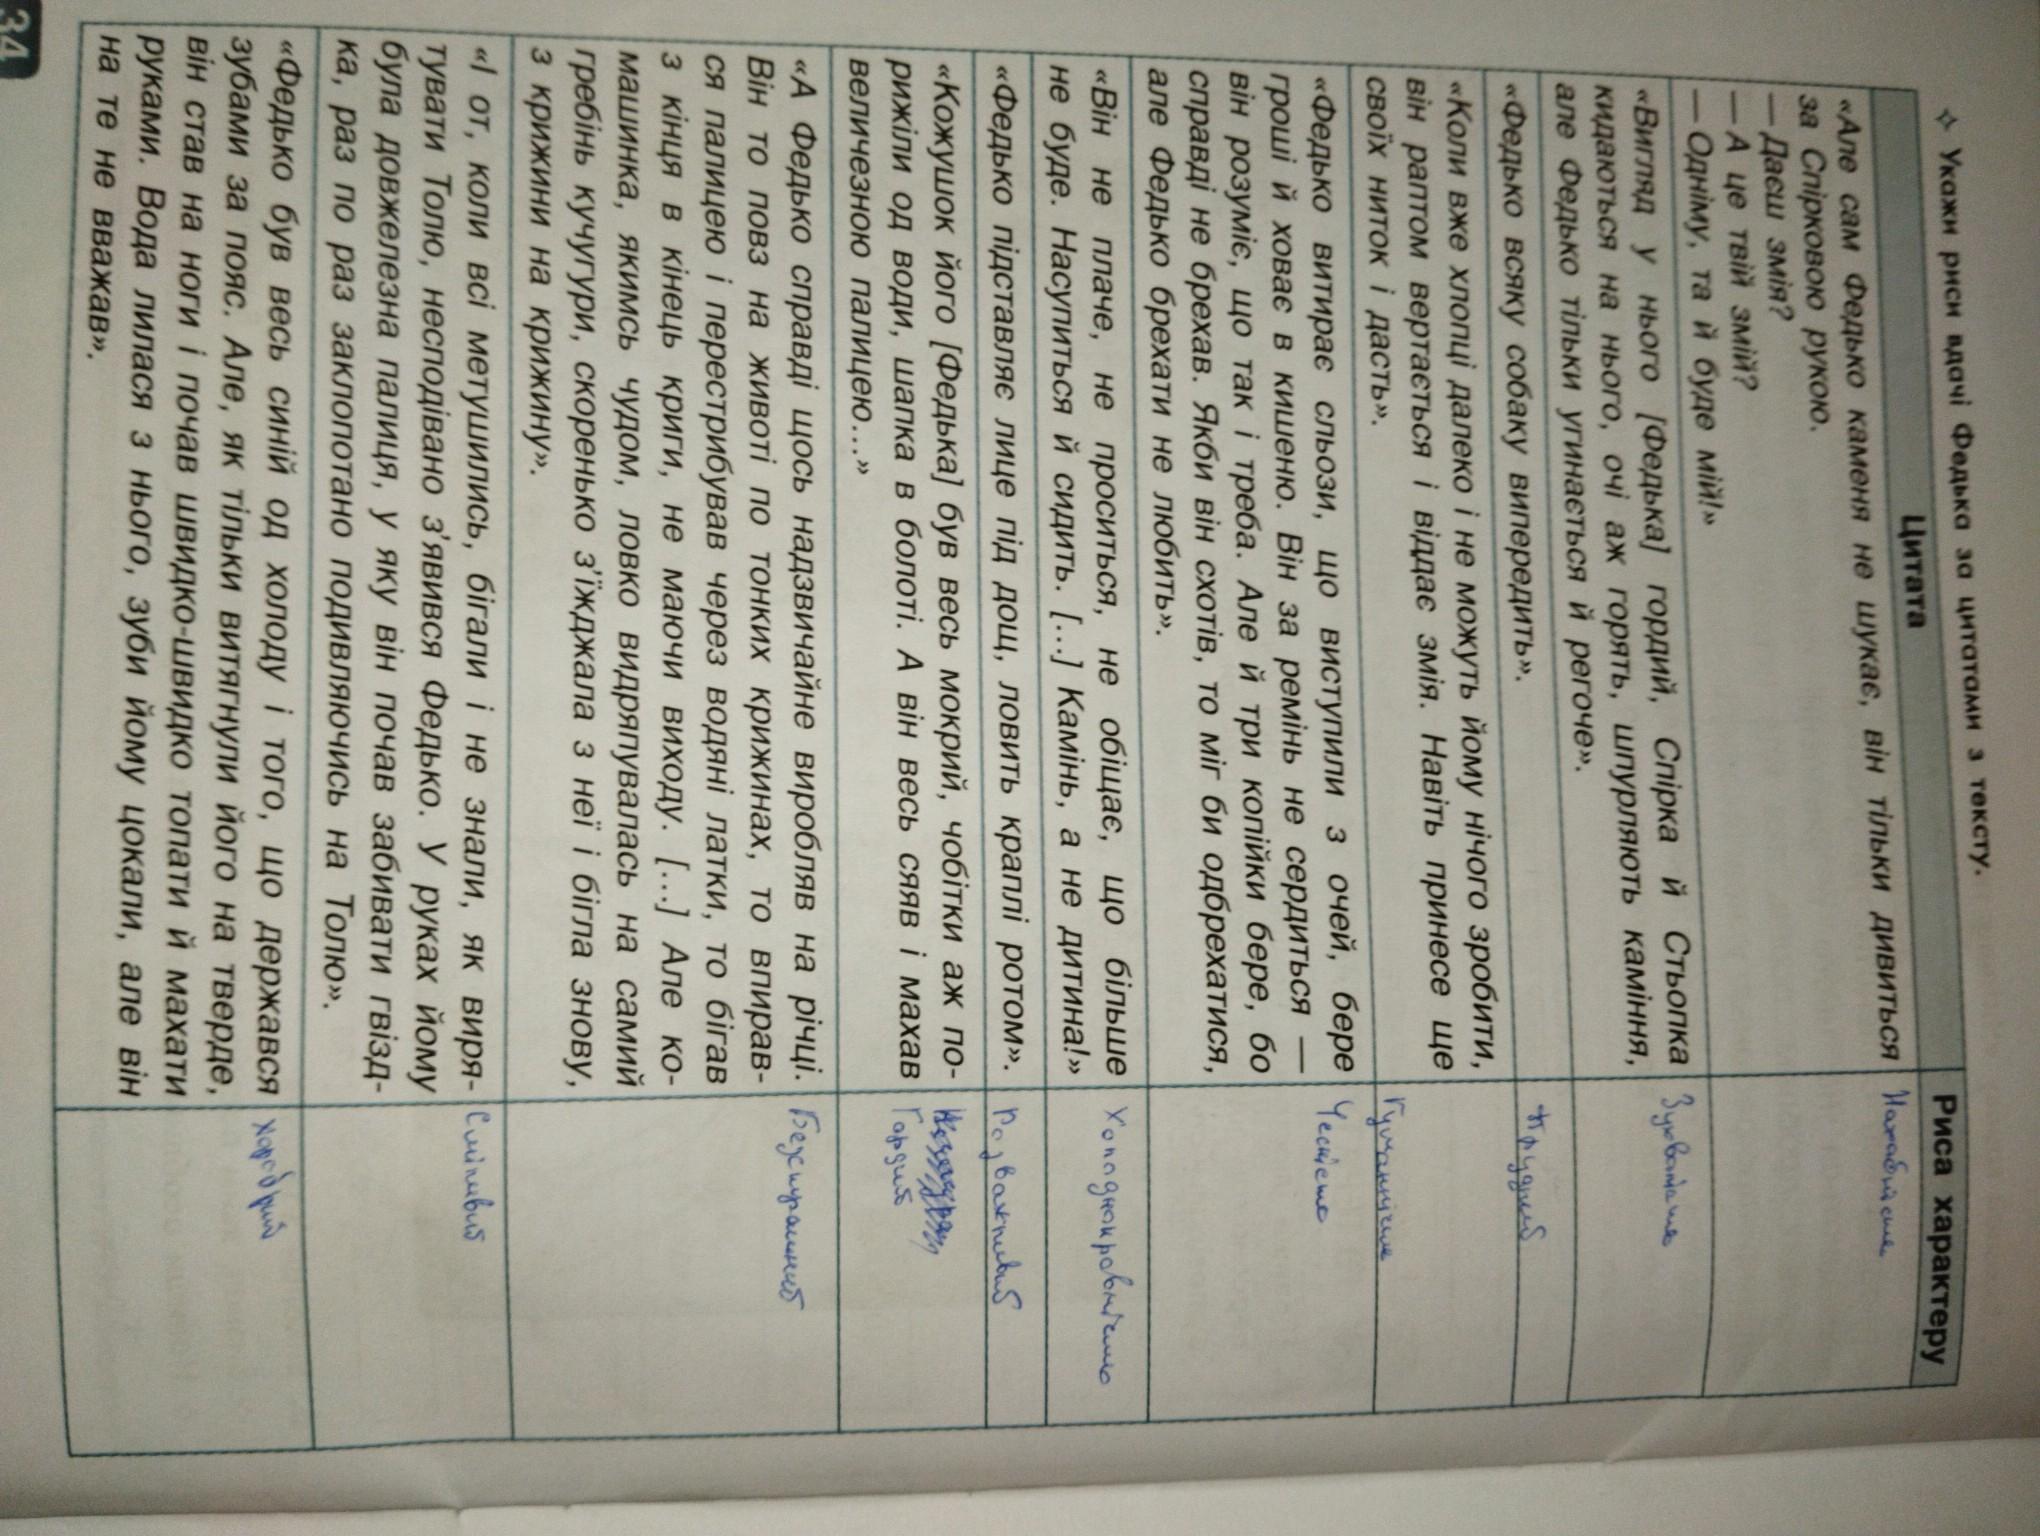 ✧ Укажи риси вдачі Федька за цитатами з тексту.
Цитата
Риса характеру
«Але сам Федько каменя не шукає, він тільки дивиться
за Спірковою рукою.
— Даєш змія?
— А це твій змій?
— Одніму, та й буде мій!»
«Вигляд у нього [Федька] гордий, Спірка й Стьопка
кидаються на нього, очі аж горять, шпурляють каміння,
але Федько тільки угинається й регоче».
Зухвалість
«Федько всяку собаку випередить».
«Коли вже хлопці далеко і не можуть йому нічого зробити,
він раптом вертається і віддає змія. Навіть принесе ще
своїх ниток і дасть».
«Федько витирає сльози, що виступили з очей, бере
гроші й ховає в кишеню. Він за ремінь не сердиться —
він розуміє, що так і треба. Але й три копійки бере, бо
справді не брехав. Якби він схотів, то міг би одбрехатися,
але Федько брехати не любить».
Чесність
«Він не плаче, не проситься, не обіцяє, що більше
не буде. Насупиться й сидить. [...] Камінь, а не дитина!»
Холоднокровність
«Федько підставляє лице під дощ, ловить краплі ротом».
Розважливий
«Кожушок його [Федька] був весь мокрий, чобітки аж по-
рижіли од води, шапка в болоті. А він весь сяяв і махав
величезною палицею...»
Гордий
«А Федько справді щось надзвичайне виробляв на річці.
Він то повз на животі по тонких крижинах, то впирав-
ся палицею і перестрибував через водяні латки, то бігав
з кінця в кінець криги, не маючи виходу. [...] Але ко-
машинка, якимсь чудом, ловко видряпувалась на самий
гребінь кучугури, скоренько з'їжджала з неї і бігла знову,
з крижини на крижину».
Безстрашний
«І от, коли всі метушились, бігали і не знали, як виря-
тувати Толю, несподівано з'явився Федько. У руках йому
була довжелезна палиця, у яку він почав забивати гвізд-
ка, раз по раз заклопотано подивляючись на Толю».
Сміливий
«Федько був весь синій од холоду і того, що держався
зубами за пояс. Але, як тільки витягнули його на тверде,
він став на ноги і почав швидко-швидко топати й махати
руками. Вода лилася з нього, зуби йому цокали, але він
на те не вважав».
хоробрий
34